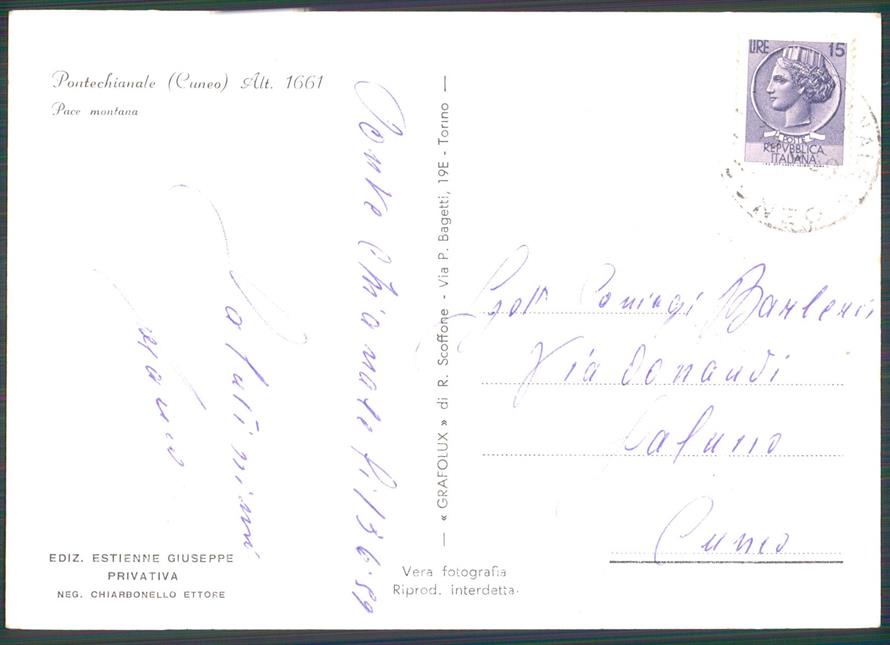 Pontechianale (Cuneo) Alt. 1661
Pace montana
Ponte Chianale li 13 6.59
Saluti
EDIZ. ESTIENNE GIUSEPPE
PRIVATIVA
NEG. CHIARBONELLO ETTORE
— « GRAFOLUX » di R. Scoffone - Via P. Bagetti, 19E - Torino —
Vera fotografia
Riprod. interdetta.
LIRE 15
POSTE
REPVBBLICA
ITALIANA
Coniugi Barberis
Via Donaudi
Saluzzo
Cuneo